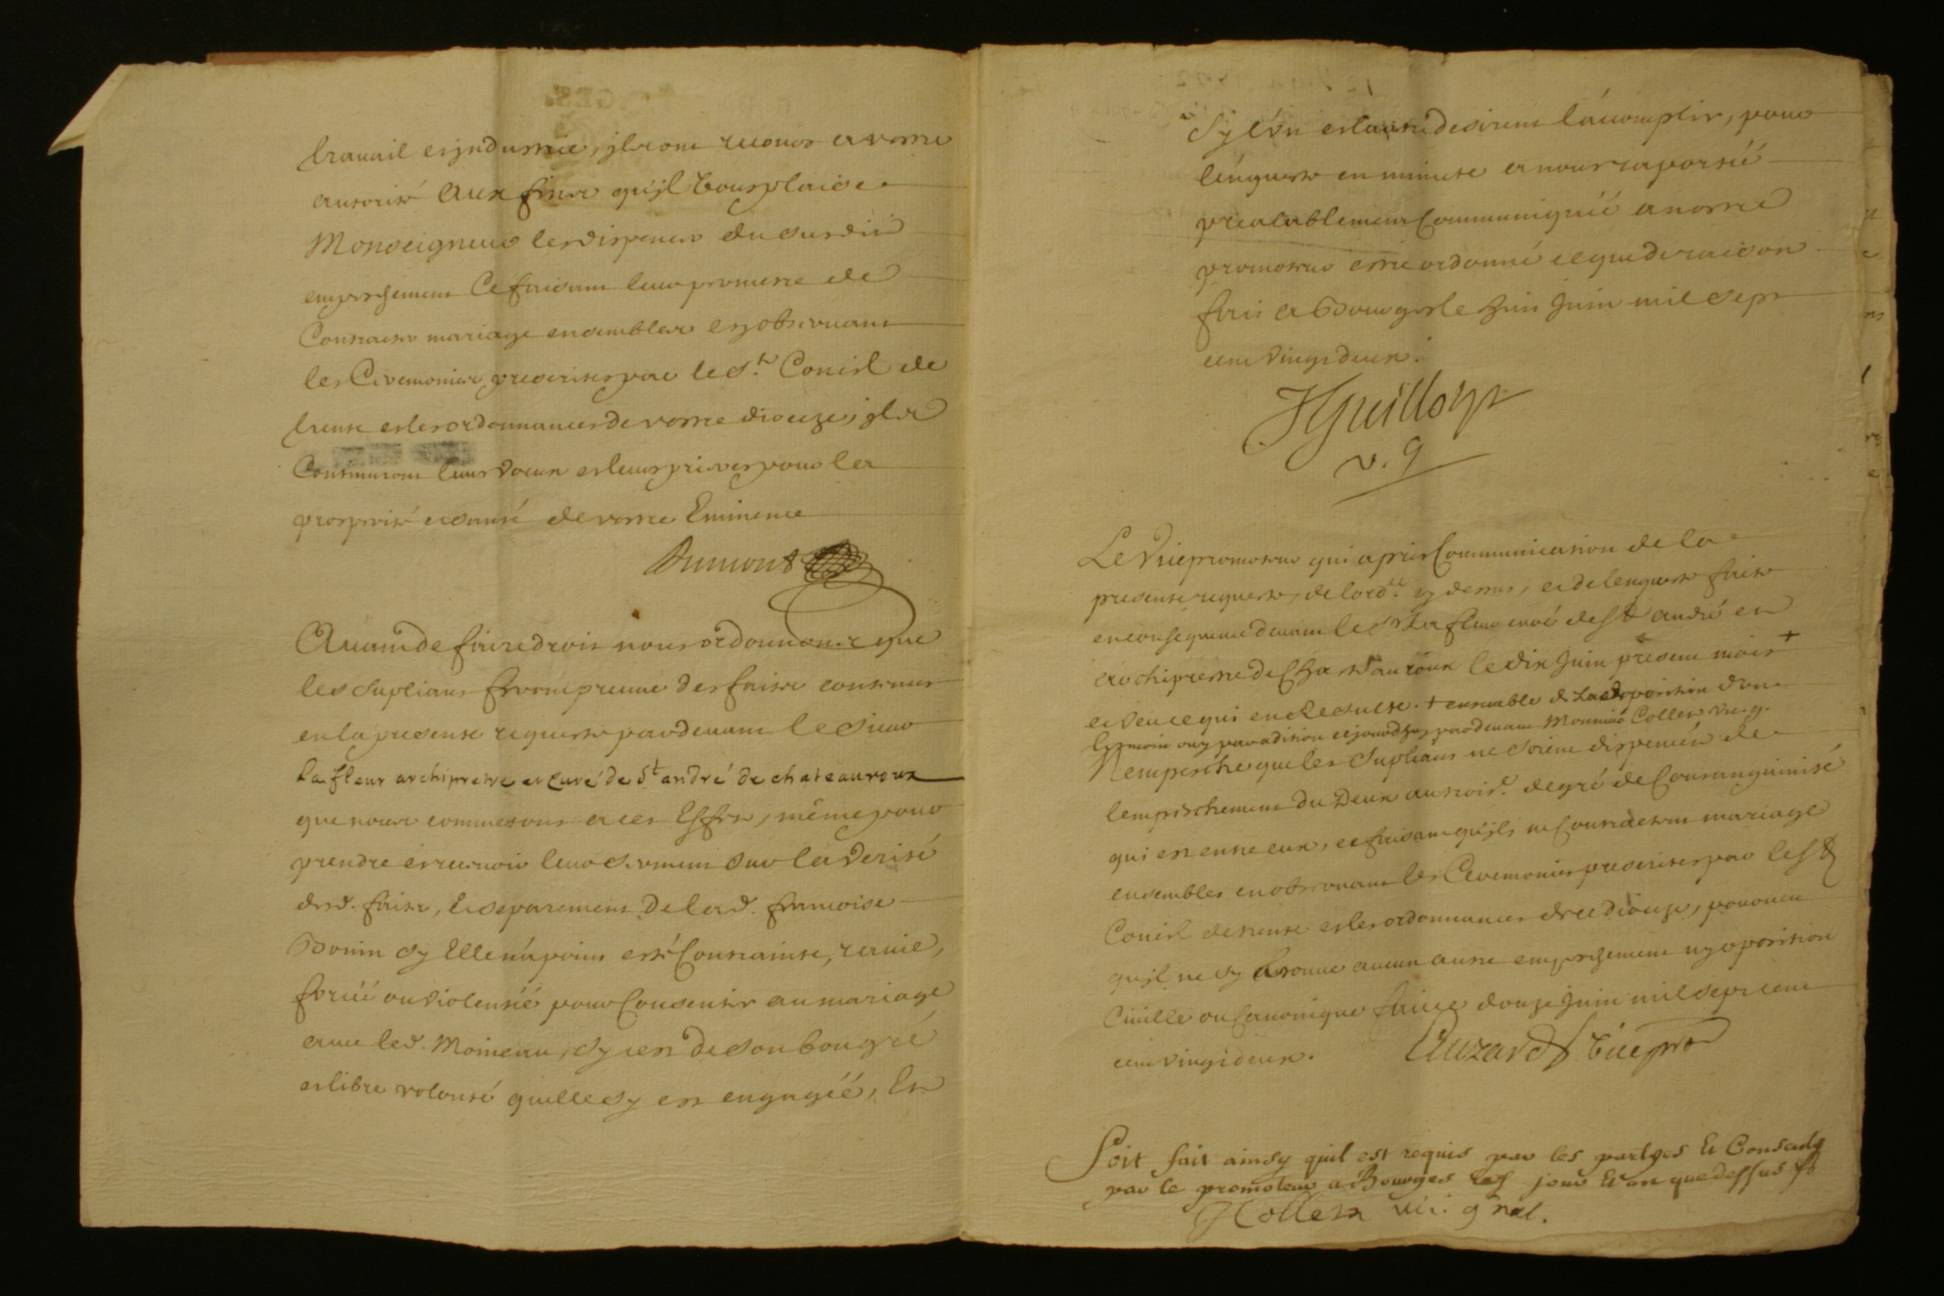 travail et jndustrie, jls ont recours a votre
autorité aux fins qu'jl vous plaise
Monseigneur les dispenser du susdit
empeschement Ce faisant leur permettre de
Contracter mariage ensembles en observant
les Ceremonies prescrites par le St. Concil de
trente et les ordonnances de votre dioceze, jls
Continuront leurs voeux et leurs prieres pour la
prosperité et santé de votre Eminence
Dumont
Avant de faire droit nous ordonnons que
les supliants feront preuve des faits contenus
en la presente requeste pardevant le sieur
La fleur archipretre et curé de St. andré de chateauroux
que nous commetons a ces effets, même pour
prendre et recevoir leur serment sur la verité
desd. faits, et separement de lad. francoise
Bonin sy Elle n'a point esté Contrainte, ravie,
forcéé ou violentéé pour Consentir au mariage
avec led. Moineau, sy c'est de son bon gré
et libre volonté quelle sy est engagéé, Et
sy l'un et l'autre desirent l'acomplir, pour
l'enqueste en minute a nous raportéé
prealablement Communiquéé a notre
promoteur estre ordonné ce que de raison
fait a Bourges le huit Juin mil sept
cent vingt deux.
v. g
Le Vicepromoteur qui a pris Communication de la
presente requeste, de lord.ce cy dessus, et de lenqueste faite
en consequence devant le Sr La fleur curé de St andré en
archiprestre de Chasteauroux le dix Juin present mois +
et veu ce qui en Resulte. + ensemble de la deposition d'un
temoin ouy par adition cejourdhuy pardevant Monsieur Collet vic. g.
N'empesche que les supliants ne soient dispencés de
l'empeschement du Deux au trois.e degré de Consanguinité
qui est entre eux, ce faisant qu'jls ne Contractent mariage
ensembles en observant les Ceremonies prescrites par le St
Concil de trente et les ordonnances de ce dioceze, pourveu
qu'jl ne sy trouve aucun autre empeschement ny oposition
Civille ou Canonique faict ce douze Juin mil sept cent
cent vingt deux.
Soit fait ainsy quil est requis par les partyes Et Consenty
par le promoteur a Bourges les jour et an que dessus
Collet vic. gnal.